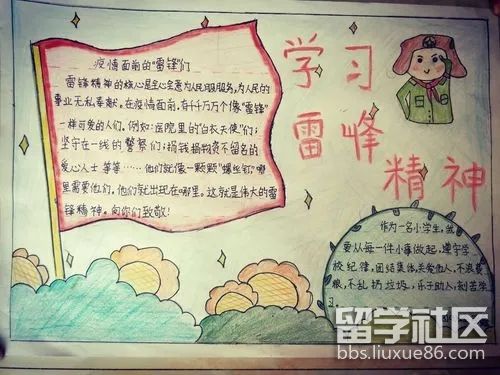 疫情面前的"雷锋"们
雷锋精神的核心是全心全意为人民服务，为人民的
事业无私奉献。在疫情面前，有千千万万个像"雷锋"
一样可爱的人们。例如：医院里的"白衣天使"们；
坚守在一线的警察们；捐钱捐物资不留名的
爱心人士等等……他们就像一颗颗"螺丝钉"哪
里需要他们，他们就出现在哪里。这就是伟大的雷
锋精神。向你们致敬！
学习
雷峰
精神
作为一名小学生，我
要从每一件小事做起，遵守学
校纪律，团结集体，关爱他人，不浪费
粮，不乱扔垃圾，乐于助人，刻苦学
习。
留学社区
bbs.liuxue86.com